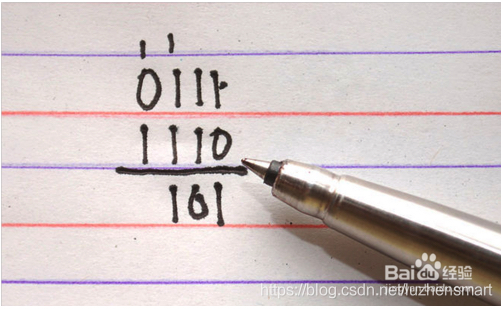 11
0111
1110
101
Baidu经验
https://blog.csdn.net/luzhensmart